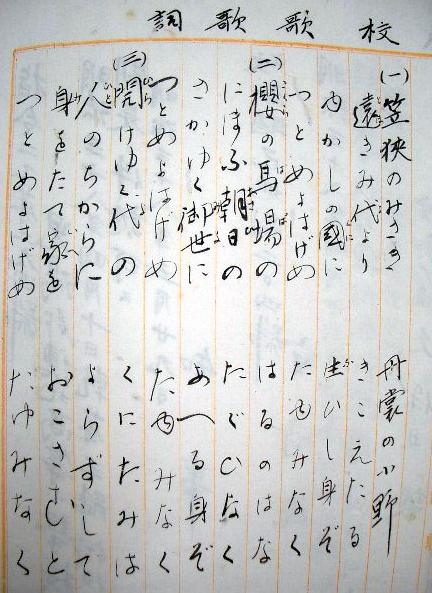 校歌歌詞
(一)笠狭のみさき　丹裳の小野
遠きみ代より　きこえたる
ゆかしの國に　生ひし身ぞ
つとめよはげめ　たゆみなく
(二)櫻の馬場の　はるのはな
にほふ朝日の　たぐひなく
さかゆく御世に　あへる身ぞ
つとめよはげめ　たゆみなく
(三)開けゆく代の　くにたみは
人のちからに　よらずして
身をたて家を　おこさむと
つとめよはげめ　たゆみなく